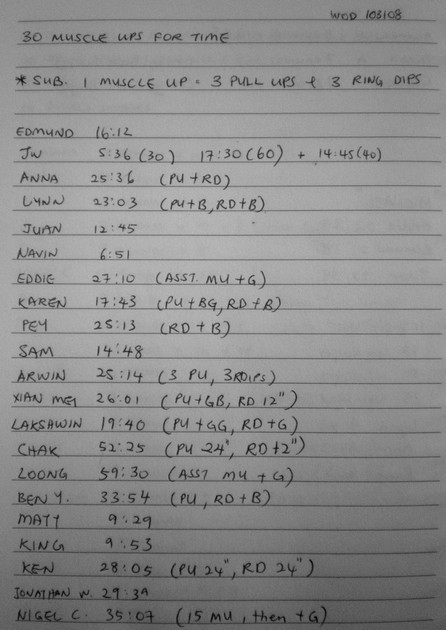 WOD 103108
30 MUSCLE UPS FOR TIME
* SUB. 1 MUSCLE UP = 3 PULL UPS & 3 RING DIPS
EDMUND 16:12
JW 5:36 (30) 17:30 (60) + 14:45 (40)
ANNA 25:36 (PU + RD)
LYNN 23:03 (PU+B, RD+B)
JUAN 12:45
NAVIN 6:51
EDDIE 27:10 (ASST. MU + G)
KAREN 17:43 (PU + BG, RD + B)
PEY 25:13 (RD + B)
SAM 14:48
ARWIN 25:14 (3 PU, 3RDIPS)
XIAN MEI 26:01 (PU + GB, RD 12")
LAKSHWIN 19:40 (PU + GG, RD + G)
CHAK 52:25 (PU 24", RD +2")
LOONG 59:30 (ASST MU + G)
BEN Y. 33:54 (PU, RD + B)
MATY 9:29
KING 9:53
KEN 28:05 (PU 24", RD 24")
JONATHAN W. 29:39
NIGEL C. 35:07 (15 MU, then +G)